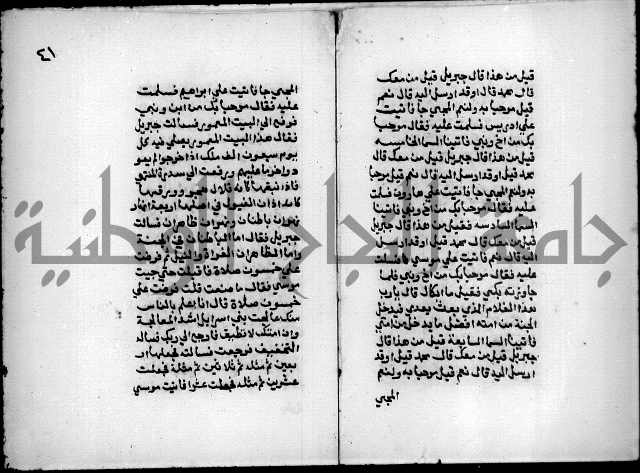 قيل من هذا قال جبريل قيل من معك
قال محمد قال اوقد ارسل اليه قال نعم
قيل مرحبا به ولنعم المجي جا فاتيت
على ادريس فسلمت عليه فقال مرحبا
بك من اخ ونبي فاتينا السما الخامسه
قيل من هذا قال جبريل قيل من معك قال
محمد قيل اوقد ارسل اليه قال نعم قيل مرحبا
به ولنعم المجي جا فاتيت على هرون فسلمت
عليه فقال مرحبا بك من اخ ونبي فاتينا
السما السادسه فقيل من هذا قال جبريل
قيل من معك قال محمد قيل اوقد ارسل
اليه قال نعم فاتيت على موسى فسلمت
عليه فقال مرحبا بك من اخ ونبي فلما
جاوزته بكى فقيل ما ابكاك قال يارب
هذا الغلام الذي بعث بعدي يدخل
الجنة من امته افضل ما يدخل من امتي
فاتينا السما السابعة قيل من هذا قال
جبريل قيل من معك قال محمد قيل اوقد
ارسل اليه قال نعم قيل مرحبا به ولنعم
المجي
٤١
المجي جا فاتيت على ابراهيم فسلمت
عليه فقال مرحبا بك من ابن ونبي
فرفع الى البيت المعمور فسالت جبريل
فقال هذا البيت المعمور يصلي فيه كل
يوم سبعون الف ملك اذا خرجوا لم يعو
دوا اخر ما عليهم ورفعت الى سدرة المنتهى
فاذا نبقها كانه قلال هجر وورقها
كانه اذان الفيول في اصلها اربعة انهار
نهران باطنان ونهران ظاهران فسالت
جبريل فقال اما الباطنان في الجنة
واما الظاهران الفرات والنيل ثم فرضت
علي خمسون صلاة فاقبلت حتى جيت
موسى فقال ما صنعت قلت فرضت علي
خمسون صلاة قال انا اعلم بالناس
منك عالجت بني اسرايل اشد المعالجة
وان امتك لا تطيق فارجع الى ربك فساله
التخفيف فرجعت فسالت فجعلها ار
بعين ثم مثله ثم ثلاثين ثم مثله فجعلت
عشرين ثم مثله فجعلت عشرا فاتيت موسى
جامعة النجاح الوطنية